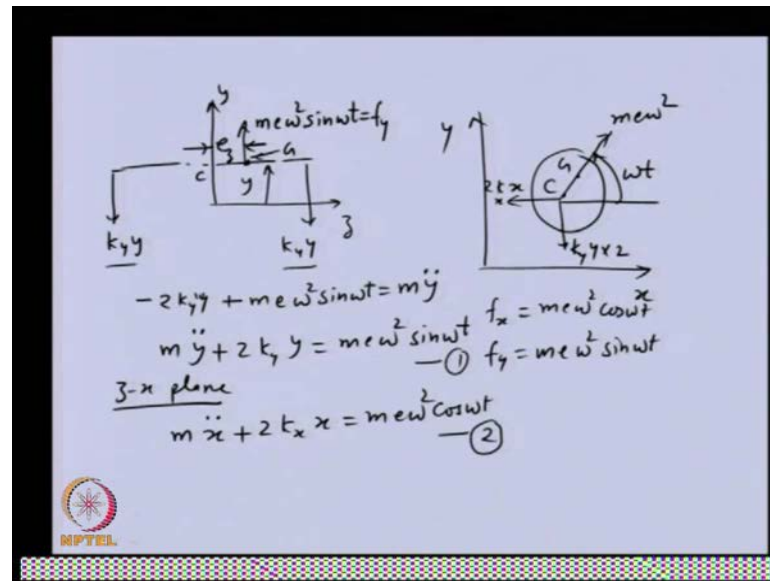 y
meω² sinωt = f_y
e_z
G
C
y
z
k_y y
k_y y
y
meω²
G
ωt
C
2k_x x
k_y y × 2
x
-2k_y y + meω² sinωt = mÿ
mÿ + 2k_y y = meω² sinωt —①
f_x = meω² cosωt
f_y = meω² sinωt
z-x plane
mẍ + 2k_x x = meω² cosωt —②
NPTEL